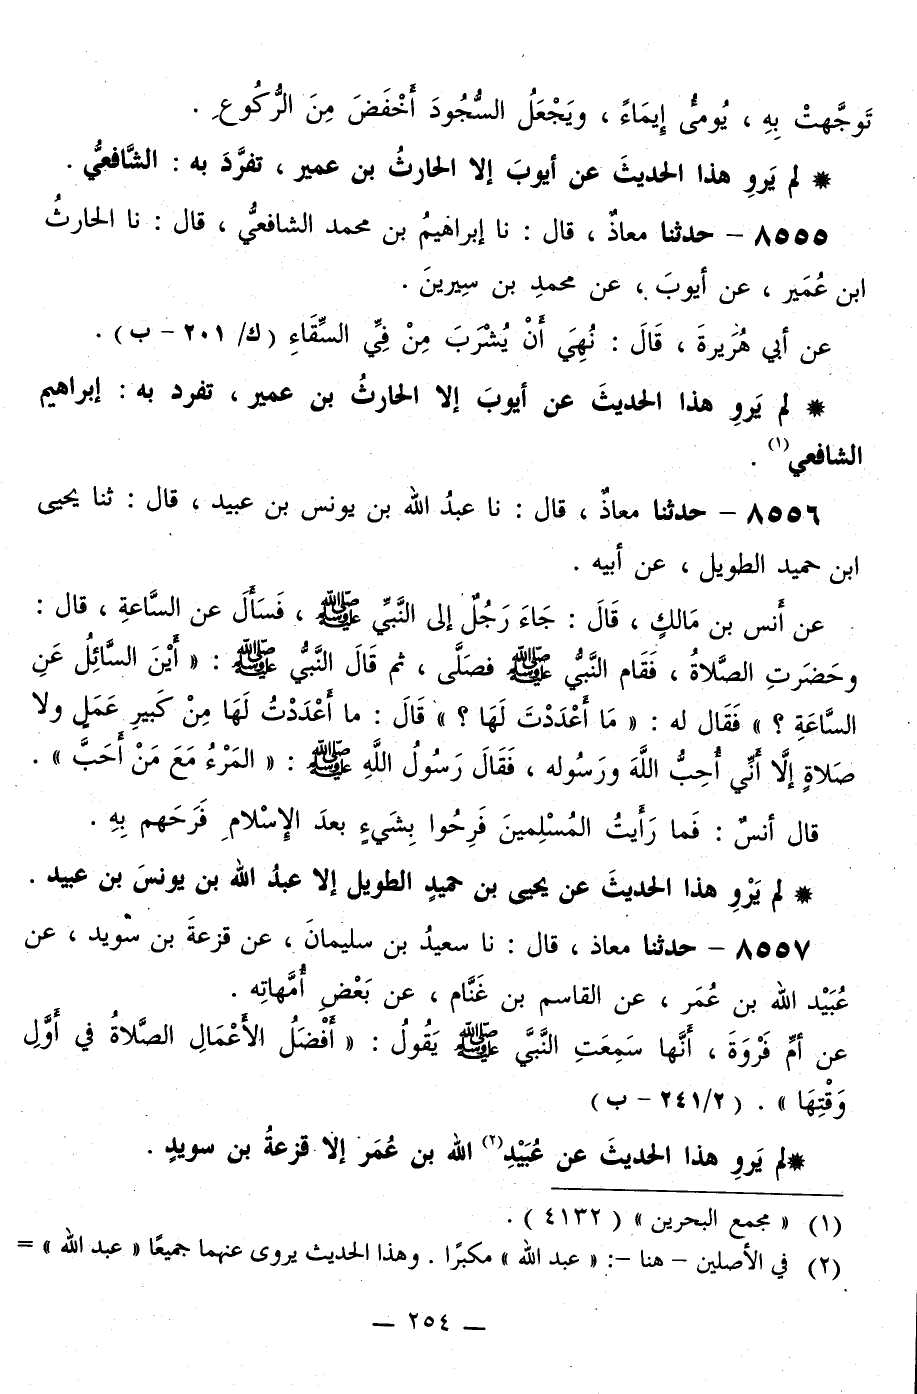 تَوجَّهتْ بِهِ ، يُومئُ إيمَاءً ، ويَجْعَلُ السُّجُودَ أَخْفَضَ مِنَ الرُّكُوعِ .
* لم يَروِ هذا الحديثَ عن أيوبَ إلا الحارثُ بن عمير ، تفرَّدَ به : الشَّافعيُّ .
٨٥٥٥ – حدثنا معاذٌ ، قال : نا إبراهيمُ بن محمد الشافعيُّ ، قال : نا الحارثُ
ابن عُمَير ، عن أيوبَ ، عن محمدِ بن سِيرينَ .
عن أبي هُرَيرةَ ، قَالَ : نُهِيَ أَنْ يُشْرَبَ مِنْ فِيِّ السِّقَاءِ (ك/ ٢٠١ – ب) .
* لم يَروِ هذا الحديثَ عن أيوبَ إلا الحارثُ بن عمير ، تفرد به : إبراهيم
الشافعي(١) .
٨٥٥٦ – حدثنا معاذٌ ، قال : نا عبدُ الله بن يونس بن عبيد ، قال : ثنا يحيى
ابن حميد الطويل ، عن أبيه .
عن أَنس بن مَالكٍ ، قَالَ : جَاءَ رَجُلٌ إلى النَّبيِّ ﷺ ، فَسَأَلَ عن السَّاعةِ ، قال :
وحَضرَتِ الصَّلاةُ ، فَقَام النَّبيُّ ﷺ فصَلَّى ، ثم قَالَ النَّبيُّ ﷺ : « أَيْنَ السَّائِلُ عَنِ
السَّاعَةِ ؟ » فَقَال له : « مَا أَعْدَدْتَ لَهَا ؟ » قَالَ : ما أَعْدَدْتُ لَهَا مِنْ كَبيرِ عَمَلٍ ولا
صَلاةٍ إلَّا أَنِّي أُحِبُّ اللَّهَ ورَسُوله ، فَقَالَ رَسُولُ اللَّهِ ﷺ : « المَرْءُ مَعَ مَنْ أَحَبَّ » .
قال أنسٌ : فَما رَأَيتُ المُسْلِمينَ فَرِحُوا بِشَيءٍ بعدَ الإسْلامِ فَرَحَهم بِهِ .
* لم يَرْوِ هذا الحديثَ عن يحيى بن حميدٍ الطويل إلا عبدُ الله بن يونسَ بن عبيد .
٨٥٥٧ – حدثنا معاذ ، قال : نا سعيدُ بن سليمانَ ، عن قزعةَ بن سُويد ، عن
عُبَيْد الله بن عُمَر ، عن القاسم بن غَنَّام ، عن بَعْضِ أُمَّهاتِه .
عن أمِّ فَرْوَةَ ، أَنَّها سَمِعَتِ النَّبيَّ ﷺ يَقُولُ : « أَفْضَلُ الأَعْمَالِ الصَّلاةُ في أَوَّلِ
وَقْتِهَا » . (٢٤١/٢ – ب)
* لم يَروِ هذا الحديثَ عن عُبَيْدِ(٢) الله بن عُمَر إلا قزعةُ بن سويدٍ .
(١) « مجمع البحرين » (٤١٣٢) .
(٢) في الأصلين – هنا –: « عبد الله » مكبرًا . وهذا الحديث يروى عنهما جميعًا « عبد الله » =
— ٢٥٤ —